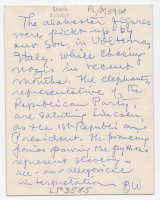 The alabaster figures
were picked up by
our son, in Volterra,
Italy, while chasing
Nazis in recent
months. The elephants,
representative of the
Republican Party,
are saluting Lincoln,
as the 1st Republican
President. The prancing
horses pawing the python
represent slavery —
all — our allegorical
interpretation
BW
LP 3585